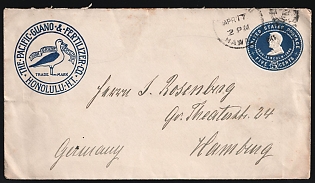 THE PACIFIC GUANO & FERTILIZER CO.
TRADE MARK
HONOLULU H.T.
APR 17
2 PM
HAW
UNITED STATES POSTAGE
FIVE CENTS
Herrn S. Rosenberg
Gr. Theaterstr. 24
Hamburg
Germany